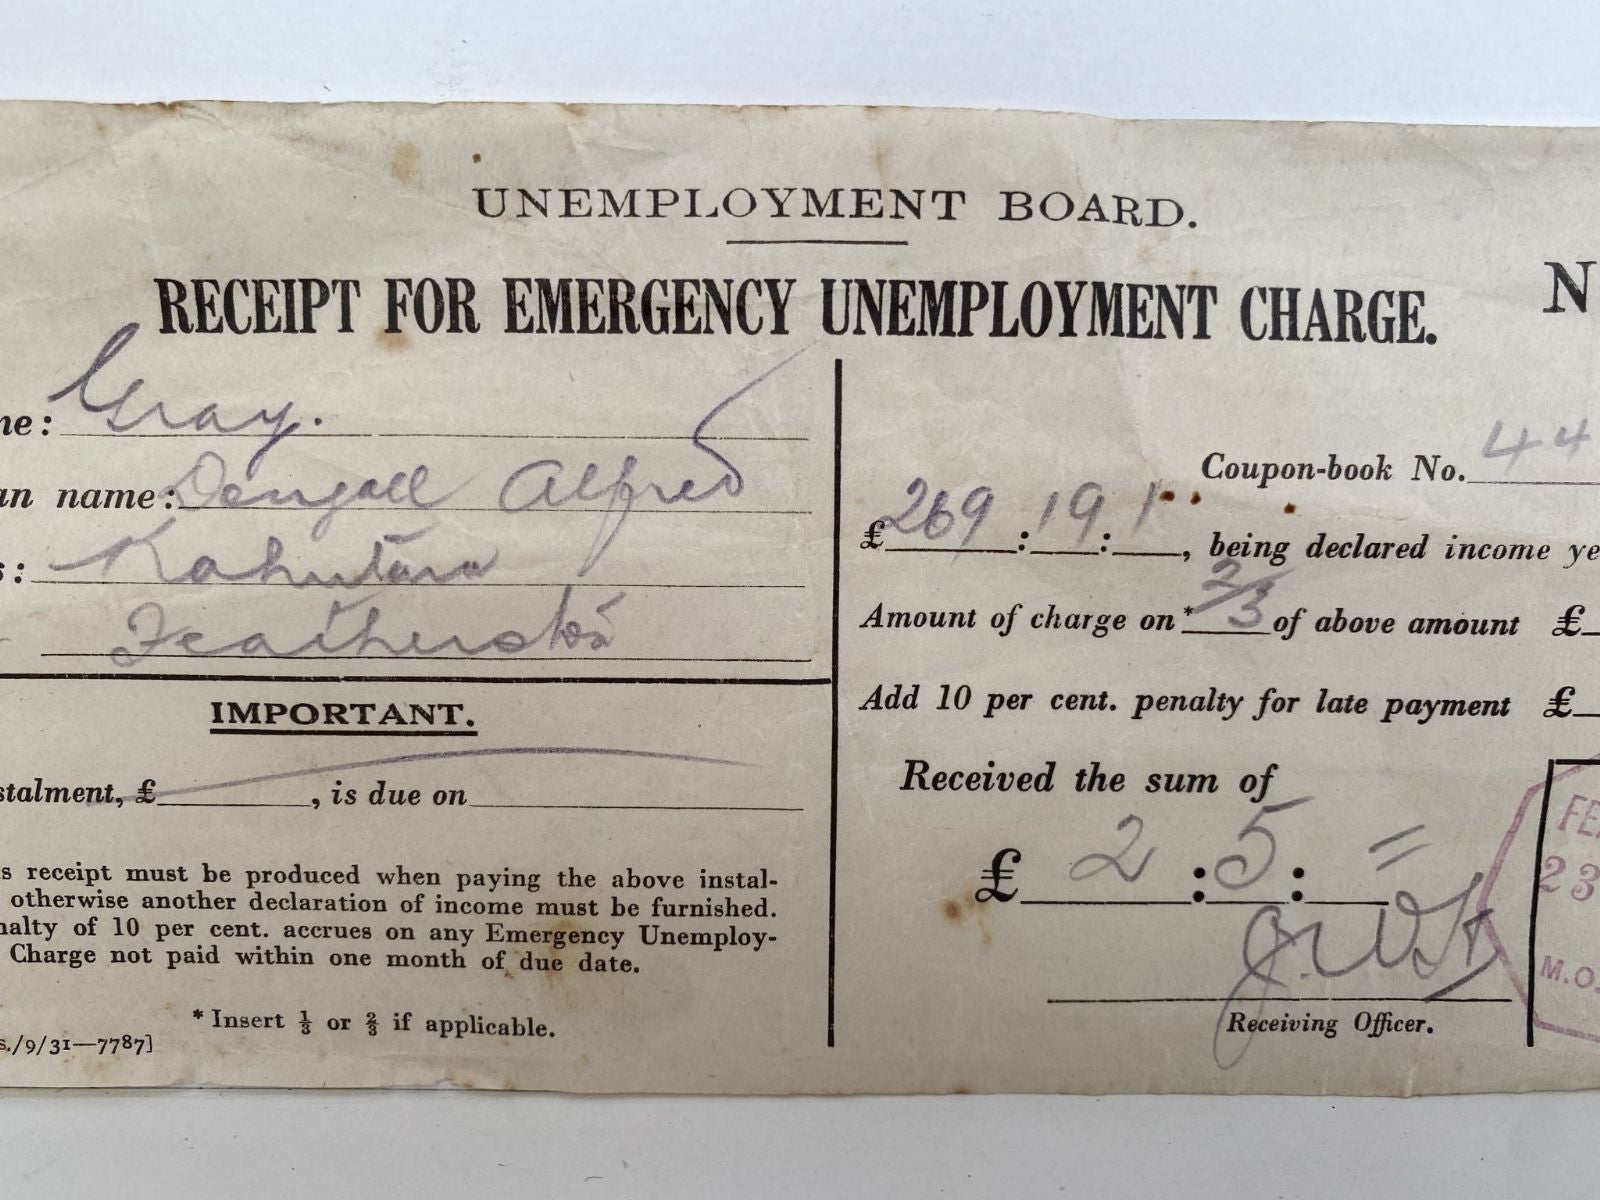 UNEMPLOYMENT BOARD.
RECEIPT FOR EMERGENCY UNEMPLOYMENT CHARGE.
N
ne: Gray.
an name: Dengall Alfred
s: Kahutara
Featherston
IMPORTANT.
stalment, £ , is due on
s receipt must be produced when paying the above instal-
otherwise another declaration of income must be furnished.
nalty of 10 per cent. accrues on any Emergency Unemploy-
Charge not paid within one month of due date.
* Insert ⅓ or ⅔ if applicable.
s./9/31—7787]
Coupon-book No. 44
£269:19:1, being declared income ye
Amount of charge on * 2/3 of above amount £
Add 10 per cent. penalty for late payment £
Received the sum of
£ 2:5:=
Receiving Officer.
FE
23
M.O.